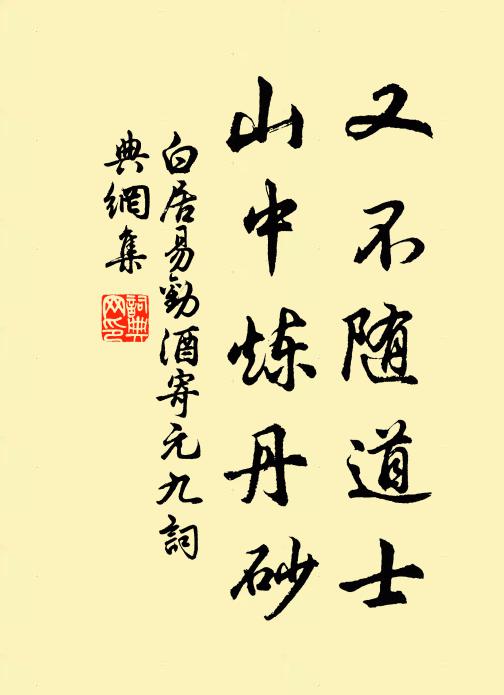 又不随道士
山中炼丹砂
白居易勸酒寄元九詞
典網集
詞典
网印